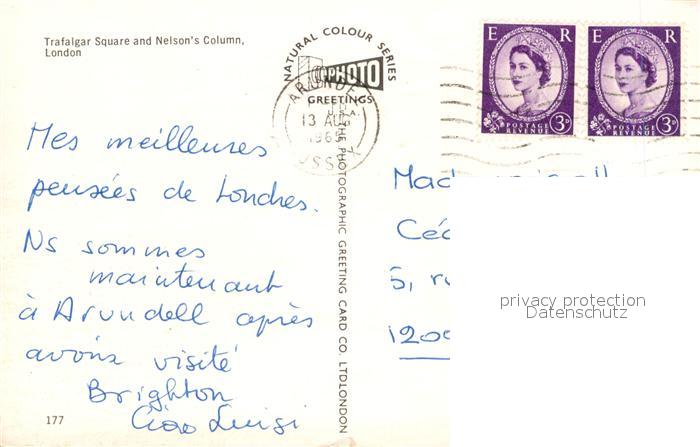 Trafalgar Square and Nelson's Column,
London
NATURAL COLOUR SERIES
PHOTO
GREETINGS
THE PHOTOGRAPHIC GREETING CARD CO. LTD LONDON
ARUNDEL
13 AUG
SUSSEX
E R
3D
POSTAGE
REVENUE
E R
3D
POSTAGE
REVENUE
Mes meilleures
pensées de Londres.
Ns sommes
maintenant
à Arundell après
avoir visité
Brighton
Ciao Luigi
177
Mad
Céc
5, ru
120
privacy protection
Datenschutz